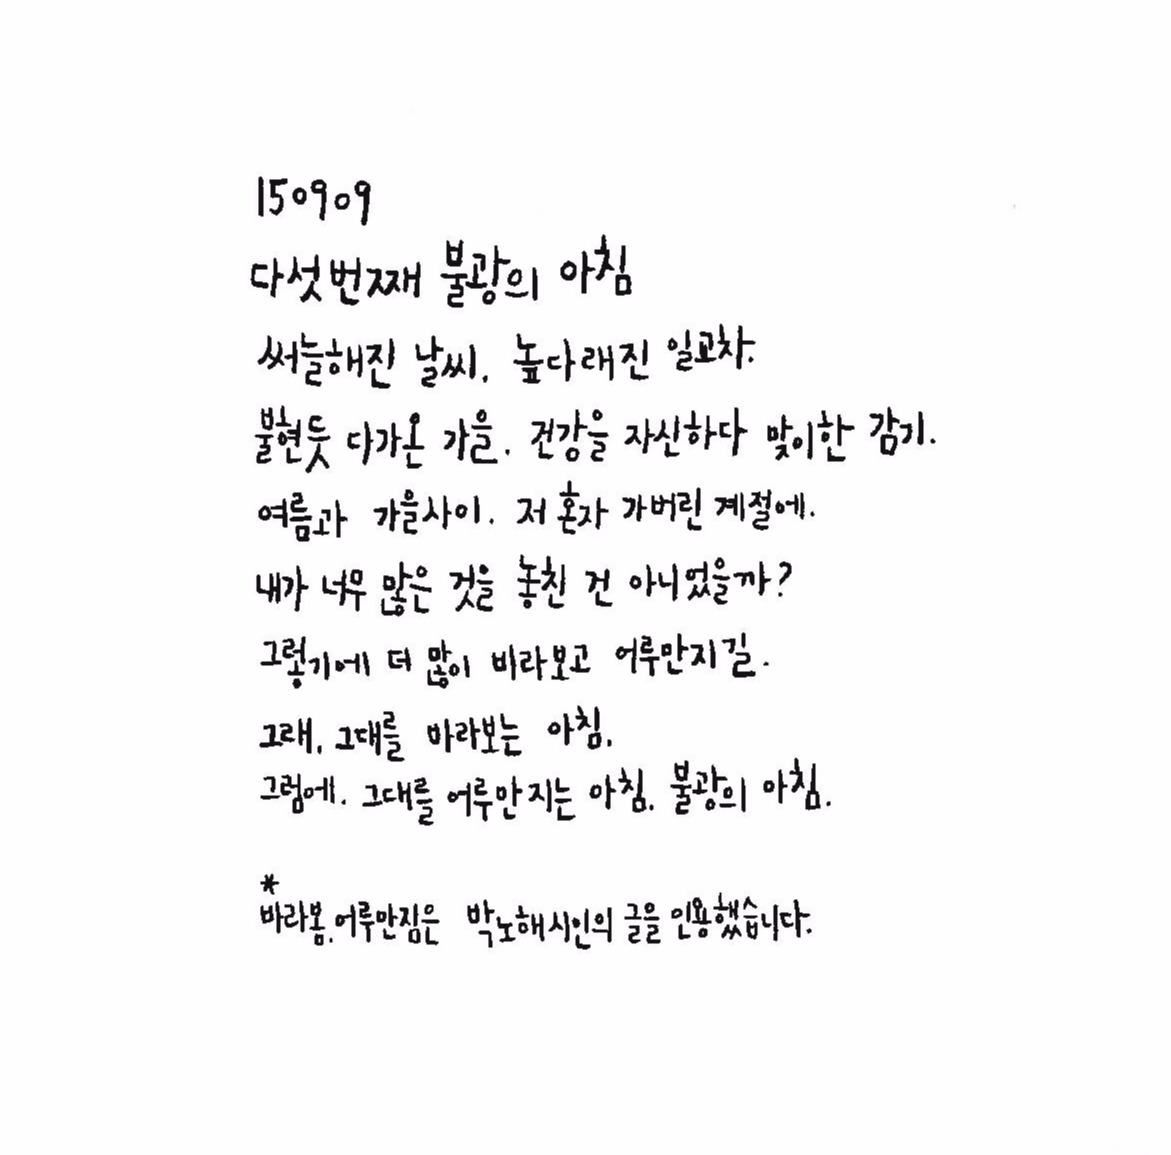 150909
다섯번째 불광의 아침
써늘해진 날씨. 높다래진 일교차.
불현듯 다가온 가을. 건강을 자신하다 맞이한 감기.
여름과 가을사이. 저 혼자 가버린 계절에.
내가 너무 많은 것을 놓친 건 아니었을까?
그렇기에 더 많이 바라보고 어루만지길.
그래, 그대를 바라보는 아침.
그럼에. 그대를 어루만지는 아침. 불광의 아침.
*
바라봄.어루만짐은 박노해시인의 글을 인용했습니다.